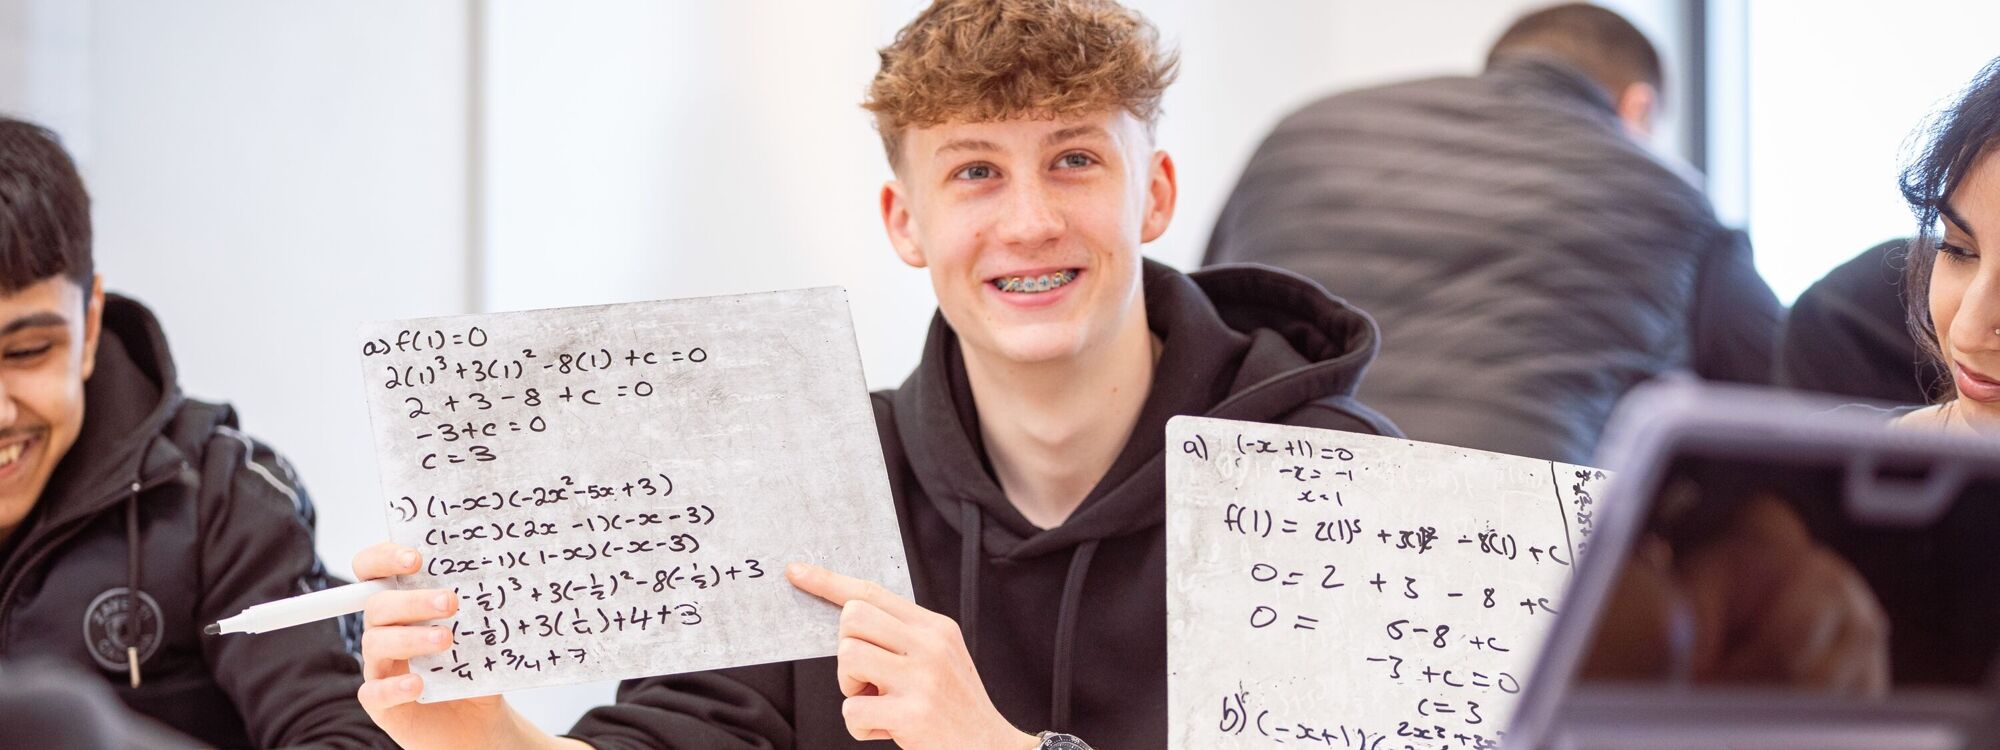 a) f(1) = 0
2(1)³ + 3(1)² - 8(1) + c = 0
2 + 3 - 8 + c = 0
-3 + c = 0
c = 3
b) (1-x)(-2x² - 5x + 3)
(1-x)(2x - 1)(-x - 3)
(2x - 1)(1-x)(-x - 3)
(-½)³ + 3(-½)² - 8(-½) + 3
(-⅛) + 3(¼) + 4 + 3
-¼ + 3/4 + 7
a) (-x + 1) = 0
-x = -1
x = 1
f(1) = 2(1)³ + 3(1)² - 8(1) + c
0 = 2 + 3 - 8 + c
0 = 5 - 8 + c
-3 + c = 0
c = 3
b) (-x+1)
2x³ + 3x²